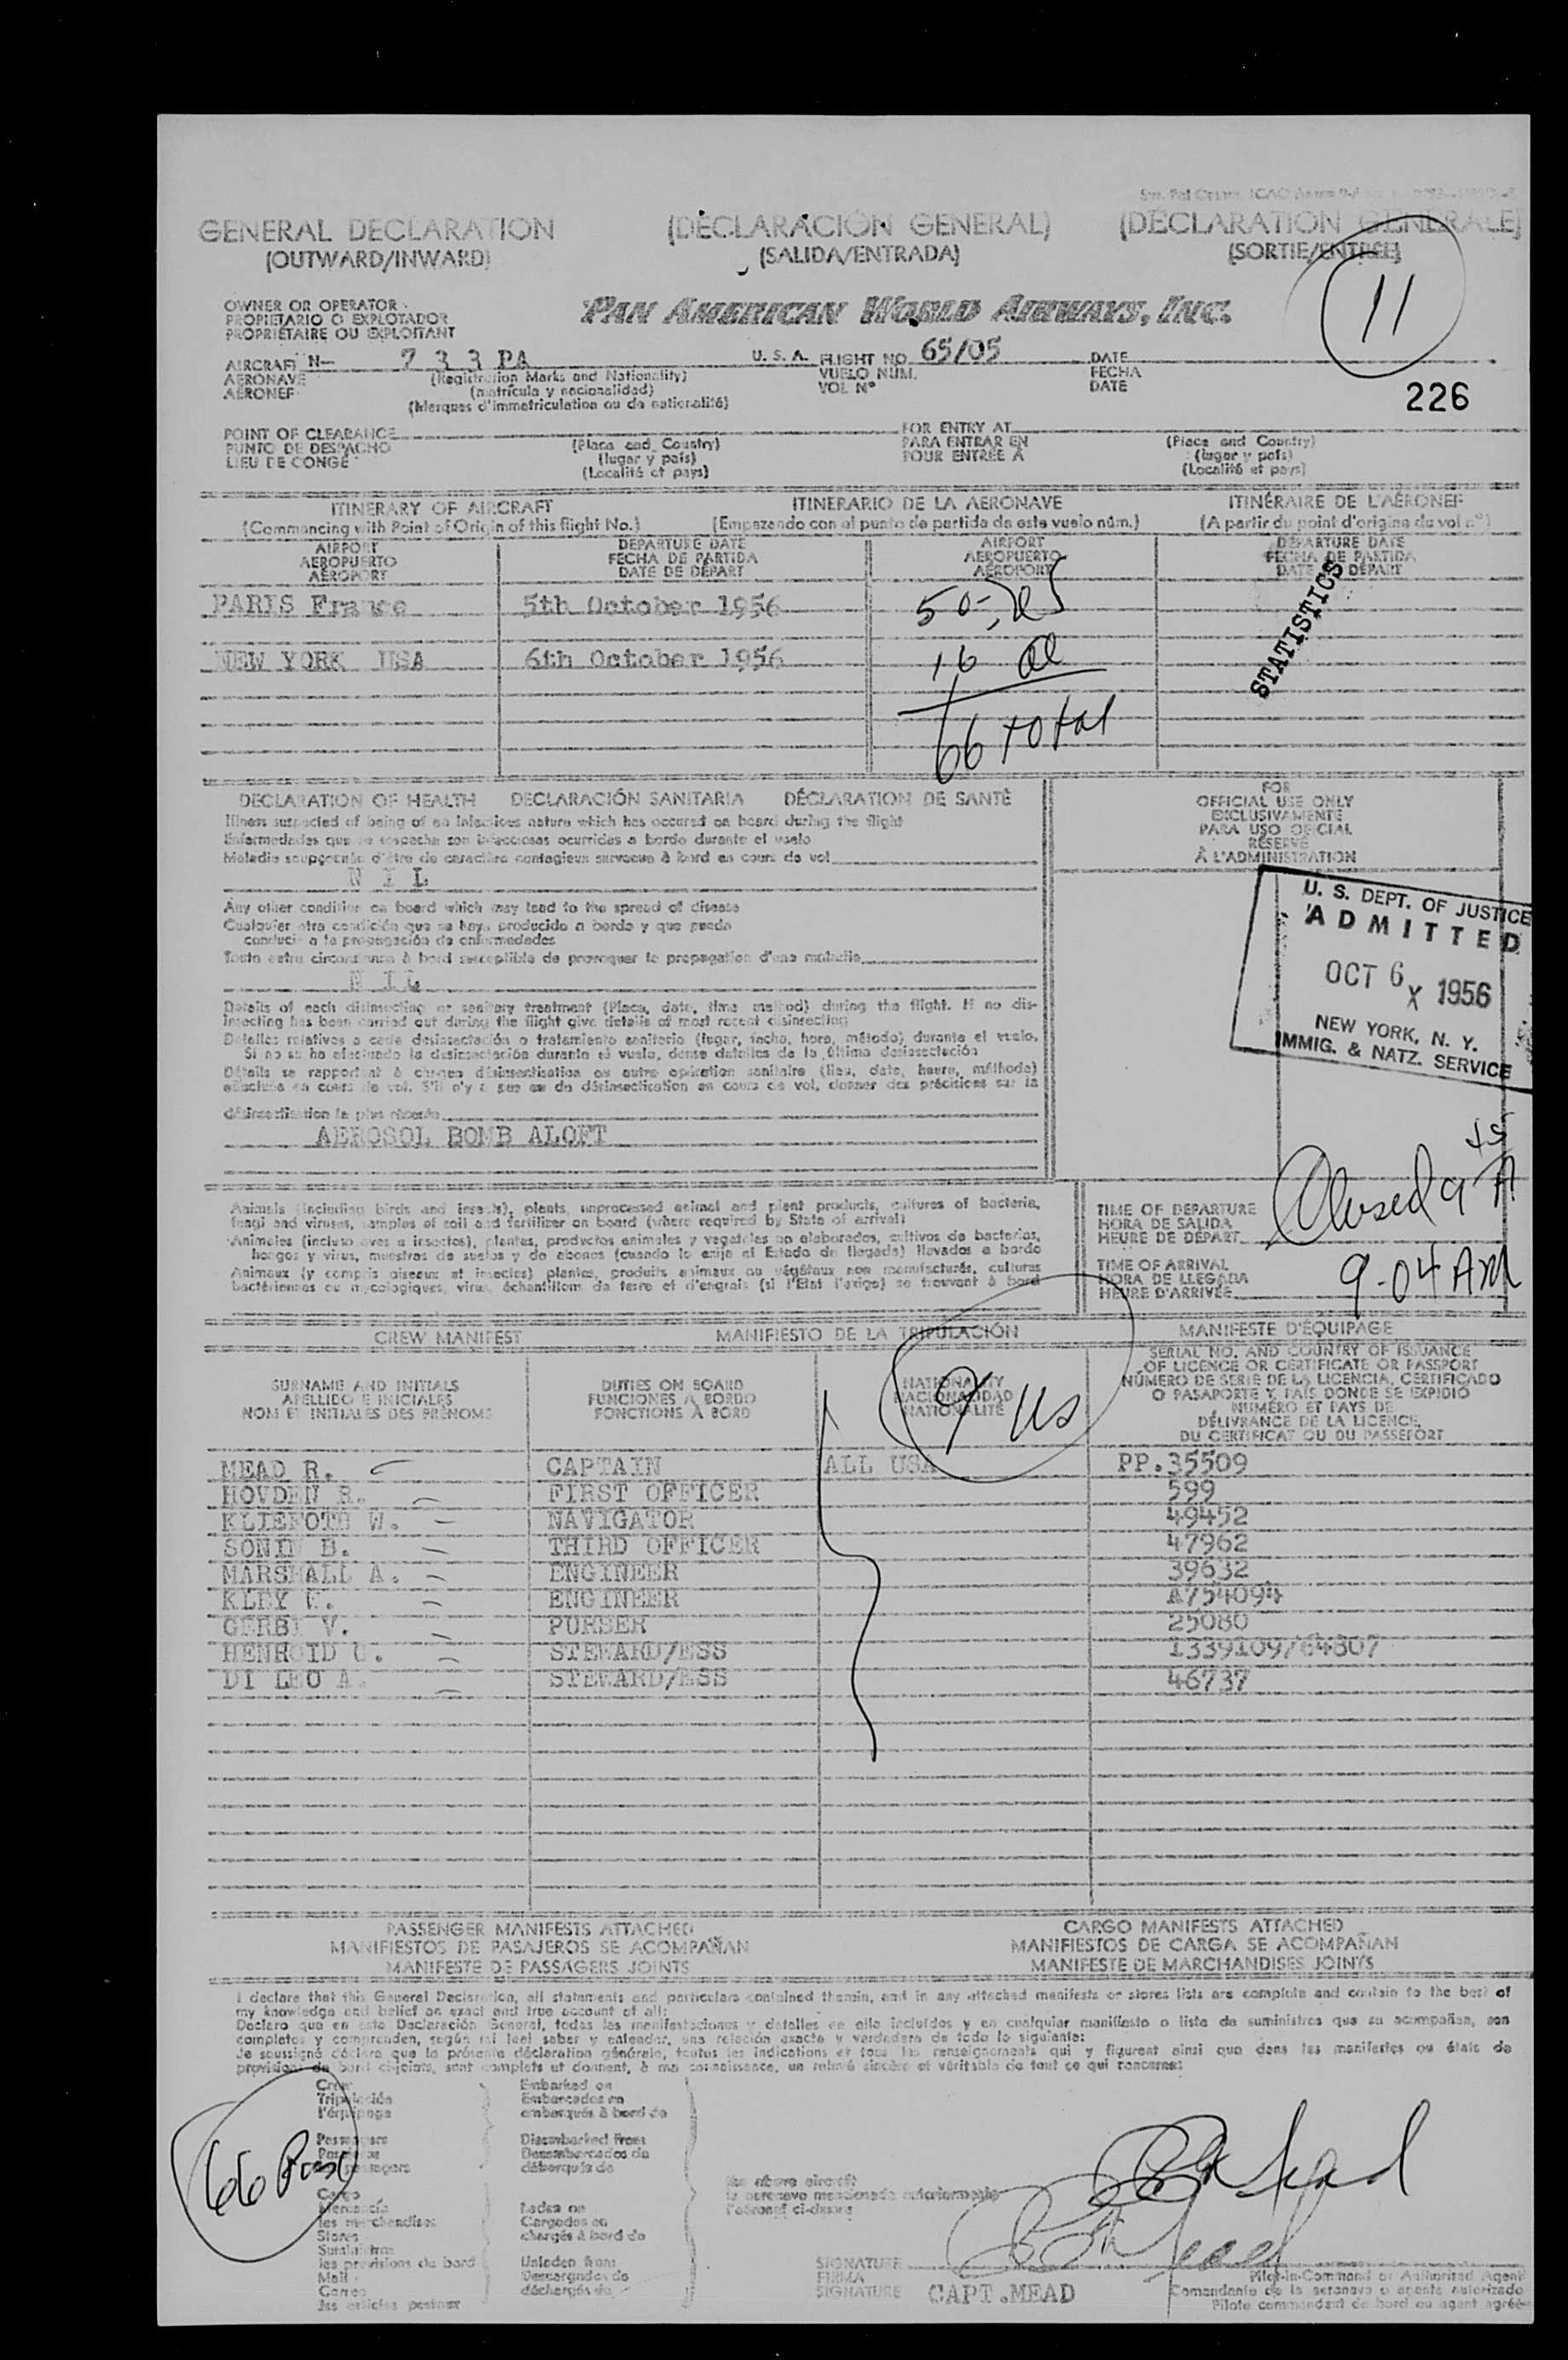 GENERAL DECLARATION (DECLARACIÓN GENERAL) (DÉCLARATION GÉNÉRALE)
(OUTWARD/INWARD) (SALIDA/ENTRADA) (SORTIE/ENTRÉE)
11
OWNER OR OPERATOR
PROPIETARIO O EXPLOTADOR
PROPRIÉTAIRE OU EXPLOITANT
PAN AMERICAN WORLD AIRWAYS, INC.
AIRCRAFT N- 733 PA U. S. A. FLIGHT NO. 65/05 DATE
AERONAVE (Registration Marks and Nationality) VUELO NÚM. FECHA
AÉRONEF (matrícula y nacionalidad) VOL Nº DATE
(Marques d'immatriculation ou de nationalité)
226
POINT OF CLEARANCE FOR ENTRY AT
PUNTO DE DESPACHO (Place and Country) PARA ENTRAR EN (Place and Country)
LIEU DE CONGÉ (lugar y país) POUR ENTRÉE À (lugar y país)
(Localité et pays) (Localité et pays)
ITINERARY OF AIRCRAFT ITINERARIO DE LA AERONAVE ITINÉRAIRE DE L'AÉRONEF
(Commencing with Point of Origin of this flight No.) (Empezando con el punto de partida de este vuelo núm.) (A partir du point d'origine du vol nº)
AIRPORT DEPARTURE DATE AIRPORT DEPARTURE DATE
AEROPUERTO FECHA DE PARTIDA AEROPUERTO FECHA DE PARTIDA
AÉROPORT DATE DE DÉPART AÉROPORT DATE DE DÉPART
PARIS France 5th October 1956 50
STATISTICS
NEW YORK USA 6th October 1956 16
66 total
DECLARATION OF HEALTH DECLARACIÓN SANITARIA DÉCLARATION DE SANTÉ
Illness suspected of being of an infectious nature which has occured on board during the flight
Enfermedades que se sospecha son infecciosas ocurridas a bordo durante el vuelo
Maladie soupçonnée d'être de caractère contagieux survenue à bord en cours de vol
N I L
Any other condition on board which may lead to the spread of disease
Cualquier otra condición que se haya producido a bordo y que pueda
conducir a la propagación de enfermedades
Toute autre circonstance à bord susceptible de provoquer la propagation d'une maladie
N I L
Details of each disinsecting or sanitary treatment (Place, date, time method) during the flight. If no dis-
insecting has been carried out during the flight give details of most recent disinsecting
Detalles relativos a cada desinsectación o tratamiento sanitario (lugar, fecha, hora, método) durante el vuelo.
Si no se ha efectuado la desinsectación durante el vuelo, dense detalles de la última desinsectación
Détails se rapportant à chaque désinsectisation ou autre opération sanitaire (lieu, date, heure, méthode)
effectuée en cours de vol. S'il n'y a pas eu de désinsectisation en cours de vol, donner des précisions sur la
désinsectisation la plus récente
AEROSOL BOMB ALOFT
FOR
OFFICIAL USE ONLY
EXCLUSIVAMENTE
PARA USO OFICIAL
RÉSERVÉ
À L'ADMINISTRATION
U. S. DEPT. OF JUSTICE
ADMITTED
OCT 6 X 1956
NEW YORK, N. Y.
IMMIG. & NATZ. SERVICE
Animals (including birds and insects), plants, unprocessed animal and plant products, cultures of bacteria,
fungi and viruses, samples of soil and fertilizer on board (where required by State of arrival)
Animales (incluso aves e insectos), plantas, productos animales y vegetales no elaborados, cultivos de bacterias,
hongos y virus, muestras de suelos y de abonos (cuando lo exija el Estado de llegada) llevados a bordo
Animaux (y compris oiseaux et insectes) plantes, produits animaux ou végétaux non manufacturés, cultures
bactériennes ou mycologiques, virus, échantillons de terre et d'engrais (si l'Etat l'exige) se trouvant à bord
Closed 9 45 A
TIME OF DEPARTURE
HORA DE SALIDA
HEURE DE DÉPART
TIME OF ARRIVAL
HORA DE LLEGADA
HEURE D'ARRIVÉE
9-04 AM
CREW MANIFEST MANIFIESTO DE LA TRIPULACIÓN MANIFESTE D'ÉQUIPAGE
SURNAME AND INITIALS
APELLIDO E INICIALES
NOM ET INITIALES DES PRÉNOMS
DUTIES ON BOARD
FUNCIONES A BORDO
FONCTIONS À BORD
NATIONALITY
NACIONALIDAD
NATIONALITÉ
9 US
SERIAL NO. AND COUNTRY OF ISSUANCE
OF LICENCE OR CERTIFICATE OR PASSPORT
NÚMERO DE SERIE DE LA LICENCIA, CERTIFICADO
O PASAPORTE Y PAÍS DONDE SE EXPIDIÓ
NUMÉRO ET PAYS DE
DÉLIVRANCE DE LA LICENCE,
DU CERTIFICAT OU DU PASSEPORT
MEAD R. CAPTAIN ALL USA PP.35509
HOVDEN R. FIRST OFFICER 599
KLIEFOTH W. NAVIGATOR 49452
SONII B. THIRD OFFICER 47962
MARSHALL A. ENGINEER 39632
KLEY ENGINEER A754094
GERBI V. PURSER 25080
HENROID STEWARD/ESS 1339109/64807
DI LEO A. STEWARD/ESS 46737
PASSENGER MANIFESTS ATTACHED CARGO MANIFESTS ATTACHED
MANIFIESTOS DE PASAJEROS SE ACOMPAÑAN MANIFIESTOS DE CARGA SE ACOMPAÑAN
MANIFESTE DE PASSAGERS JOINTS MANIFESTE DE MARCHANDISES JOINTS
I declare that this General Declaration, all statements and particulars contained therein, and in any attached manifests or stores lists are complete and contain to the best of
my knowledge and belief an exact and true account of all:
Declaro que en esta Declaración General, todas las manifestaciones y detalles en ella incluídos y en cualquier manifiesto o lista de suministros que se acompañan, son
completos y comprenden, según mi leal saber y entender, una relación exacta y verdadera de todo lo siguiente:
Je soussigné déclare que la présente déclaration générale, toutes les indications et tous les renseignements qui y figurent ainsi que dans les manifestes ou états de
provision de bord ci-joints, sont complets et donnent, à ma connaissance, un relevé sincère et véritable de tout ce qui concerne:
Crew Embarked on
Tripulación Embarcados en
l'équipage embarqués à bord de
Passengers Disembarked from
Pasajeros Desembarcados de
passagers débarqués de
66 Pass
the above aircraft
la aeronave mencionada anteriormente
l'aéronef ci-dessus
Cargo
Mercancía Laden on
les marchandises Cargados en
Stores chargés à bord de
Suministros
les provisions de bord Unladen from
Mail Descargados de
Correo déchargés de
les articles postaux
SIGNATURE
FIRMA
SIGNATURE CAPT.MEAD
Pilot-in-Command or Authorized Agent
Comandante de la aeronave o agente autorizado
Pilote commandant de bord ou agent agréé